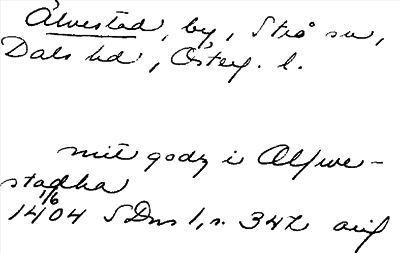 Älvestad, by, Strå sn,
Dals hd, Österg. l.
mit godz i Alffwe-
stadha
1/6
1404 SDns 1, s. 342 avs